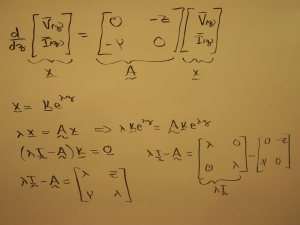 d/dz [V̄(z) Ī(z)] = [0 -Z -Y 0] [V̄(z) Ī(z)]
x A x
x = k e^λz
λx = Ax ⇒ λk e^λz = A k e^λz
(λI-A)k = 0 λI-A = [λ 0 0 λ] - [0 -Z -Y 0]
λI
λI-A = [λ Z Y λ]